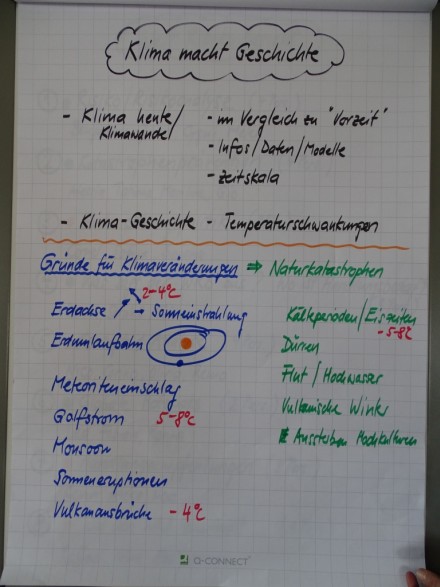 Klima macht Geschichte
- Klima heute/
Klimawandel
- im Vergleich zu "Vorzeit"
- Infos/Daten/Modelle
- Zeitskala
- Klima-Geschichte - Temperaturschwankungen
Gründe für Klimaveränderungen ⇒ Naturkatastrophen
2-4°C
Erdachse ↗ → Sonneneinstrahlung
Erdumlaufbahn
Meteoriteneinschlag
Golfstrom 5-8°C
Monsoon
Sonneneruptionen
Vulkanausbrüche - 4°C
Kälteperioden/Eiszeiten
- 5-8°C
Dürren
Flut / Hochwasser
Vulkanische Winter
Aussterben Hochkulturen
Q-CONNECT